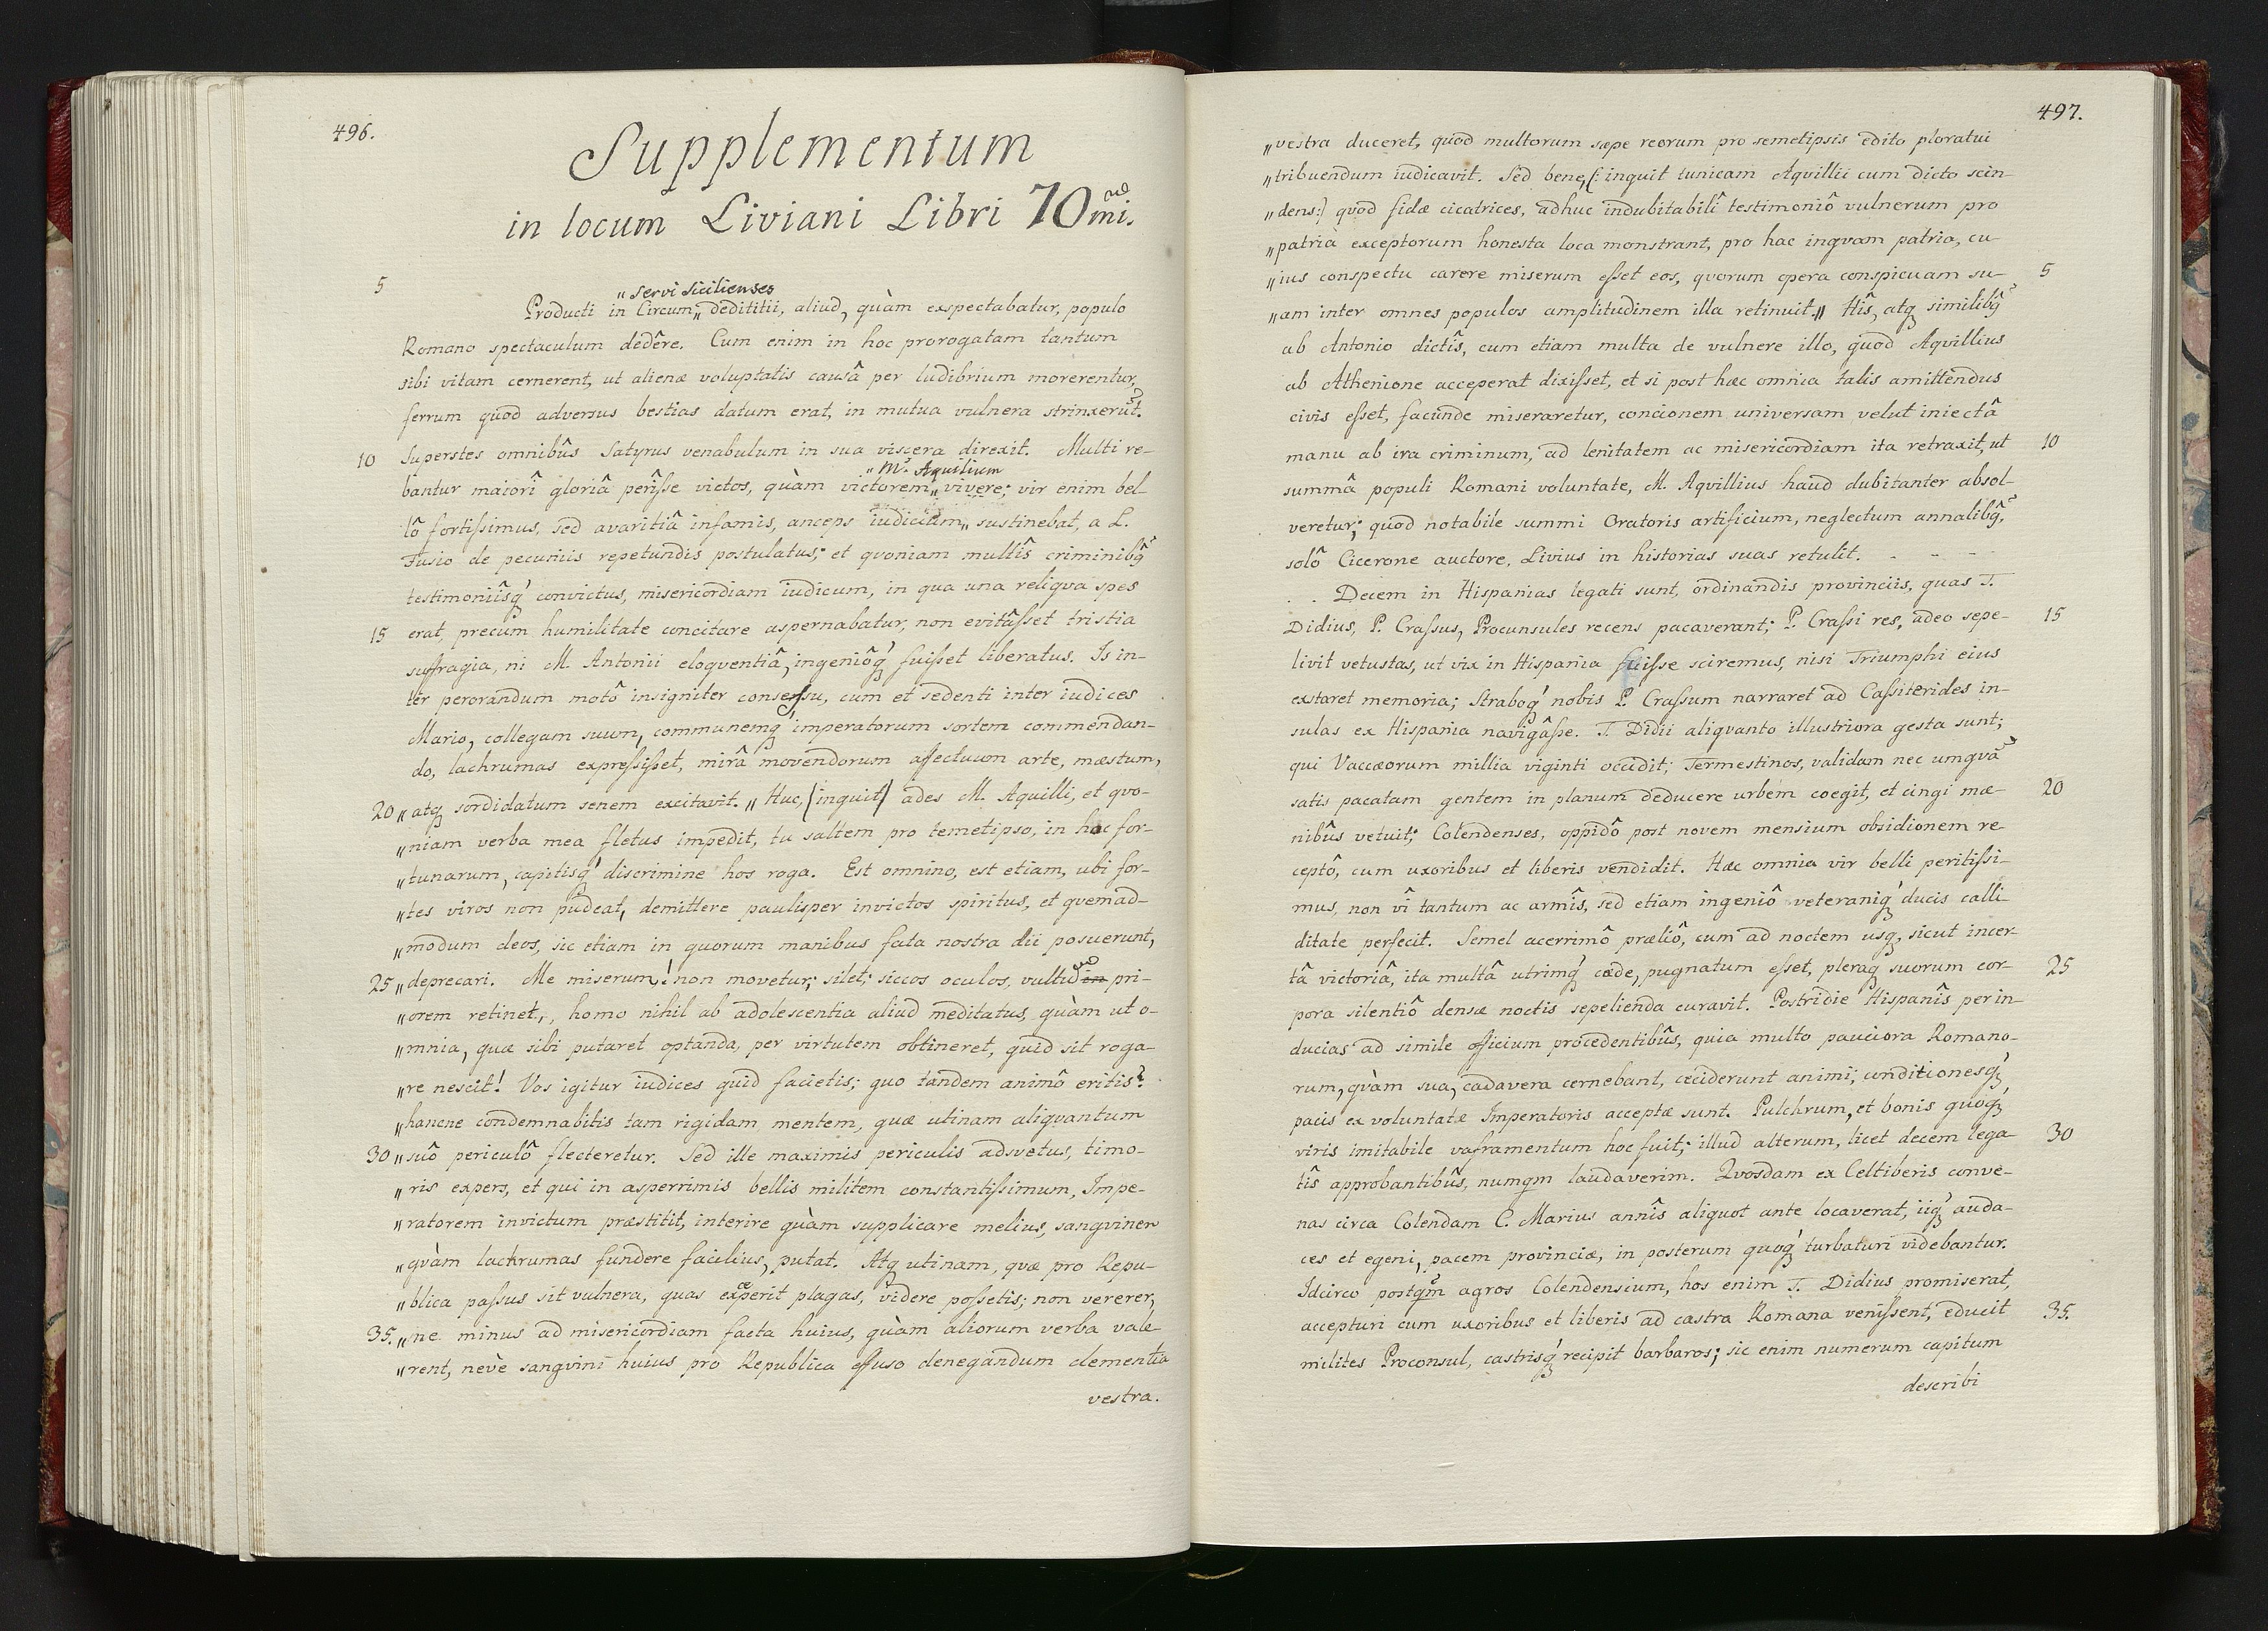 496.
Supplementum
in locum Liviani Libri 70mi.
5
„ servi Sicilienses
Producti in Circum„ dedititii, aliud, quàm exspectabatur, populo
Romano spectaculum dedêre. Cum enim in hoc prorogatam tantum
sibi vitam cernerent, ut alienæ voluptatis causâ per ludibrium morerentur,
ferrum quod adversus bestias datum erat, in mutua vulnera strinxerūt.
10 Superstes omnibûs Satyrus venabulum in sua viscera direxit. Multi re-
„ M'. Aquilium
bantur maiorî gloriâ perîsse victos, quàm victorem„ vivere; vir enim bel-
lô fortissimus, sed avaritiâ infamis, anceps iudicium„ sustinebat, a L.
Fusio de pecuniis repetundis postulatus; et qvoniam multîs criminibq̂
testimoniîsq́ convictus, misericordiam iudicum, in qua una reliqva spes
15 erat, precum humilitate concitare aspernabatur, non evitâsset tristia
suffragia, ni M. Antonii eloqventiâ, ingeniôq́ fuisset liberatus. Is in-
ter perorandum motô insigniter consessu, cum et sedenti inter iudices
Mario, collegam suum, communemq́ imperatorum sortem commendan-
do, lachrumas expressisset, mirâ movendorum affectuum arte, mæstum,
20 „ atq sordidatum senem excitavit. „ Huc, (inquit) ades M. Aquilli, et qvo-
„ niam verba mea fletus impedit, tu saltem pro temetipso, in hac for-
„ tunarum, capitisq́ discrimine hos roga. Est omnino, est etiam, ubi for-
„ tes viros non pudeat, demittere paulisper invictos spiritus, et qvemad-
„ modum deos, sic etiam in quorum manibus fata nostra dii posuerunt,
25 „ deprecari. Me miserum! non movetur; silet; siccos oculos, vultū in pri-
„ orem retinet, homo nihil ab adolescentia aliud meditatus, quàm ut o-
„ mnia, quæ sibi putaret optanda, per virtutem obtineret, quid sit roga-
„ re nescit! Vos igitur iudices quid facietis; quo tandem animô eritis?
„ hancne condemnabitis tam rigidam mentem, quæ utinam aliqvantum
30 „ suô periculô flecteretur. Sed ille maximis periculis adsvetus, timo-
„ ris expers, et qui in asperrimis bellis militem constantissimum, Impe-
„ ratorem invictum præstitit, interire quàm supplicare melius, sangvinem
„ qvàm lachrumas fundere facilius, putat. Atq utinam, qvæ pro Repu-
„ blica passus sit vulnera, quas excœperit plagas, videre possetis; non vererer,
35. „ ne minus ad misericordiam facta huius, quàm aliorum verba vale-
„ rent, nevè sangvini huius pro Republica effuso denegandum clementia
vestra.
497.
„ vestra duceret, quod multorum sæpe reorum pro semetipsis edito ploratui
„ tribuendum iudicavit. Sed bene, (: inquit tunicam Aqvillii cum dicto scin-
„ dens:) quod fidæ cicatrices, adhuc indubitabilî testimoniô vulnerum pro
„ patria exceptorum honesta loca monstrant, pro hac inqvam patria, cu-
„ ius conspectu carere miserum esset eos, qvorum opera conspicuam su- 5
„ am inter omnes populos amplitudinem illa retinuit.„ Hîs, atq similibq̂
ab Antonio dictîs, cum etiam multa de vulnere illo, quod Aqvillius
ab Athenione acceperat dixisset, et si post hæc omnia talis amittendus
civis esset, facunde miseraretur, concionem universam velut iniectâ
manu ab ira criminum, ad lenitatem ac misericordiam ita retraxit, ut 10
summâ populi Romani voluntate, M. Aqvillius haud dubitanter absol-
veretur; quod notabile summi Oratoris artificium, neglectum annalibq̂,
solô Cicerone auctore, Livius in historias suas retulit. - - - -
. . Decem in Hispanias legati sunt, ordinandis provinciis, quas T.
Didius, P. Crassus, Procunsules recens pacaverant; P. Crassi res, adeo sepe- 15
livit vetustas, ut vix in Hispania fuisse sciremus, nisi Triumphi eius
exstaret memoria; Straboq́ nobis P. Crassum narraret ad Cassiterides in-
sulas ex Hispania navigâsse. T. Didii aliqvanto illustriora gesta sunt;
qui Vaccæorum millia viginti occidit; Termestinos, validam nec umqvā
satis pacatam gentem in planum deducere urbem coegit, et cingi mæ- 20
nibûs vetuit; Colendenses, oppidô post novem mensium obsidionem re-
ceptô, cum uxoribus et liberis vendidit. Hæc omnia vir belli peritissi-
mus, non vî tantum ac armîs, sed etiam ingeniô veteraniq́ ducis calli-
ditate perfecit. Semel acerrimô præliô, cum ad noctem usq, sicut incer-
tâ victoriâ, ita multâ utrimq́ cæde, pugnatum esset, pleraq suorum cor- 25
pora silentiô densæ noctis sepelienda curavit. Postridie Hispanîs per in-
ducias ad simile officium procedentibûs, quia multo pauciora Romano-
rum, qvàm sua, cadavera cernebant, ceciderunt animi; conditionesq́,
pacis ex voluntatæ Imperatoris acceptæ sunt. Pulchrum, et bonis quoq́
viris imitabile vaframentum hoc fuit; illud alterum, licet decem lega- 30
tîs approbantibûs, numqm laudaverim. Qvosdam ex Celtiberis conve-
nas circa Colendam C. Marius annîs aliquot ante locaverat, iiq́ auda-
ces et egeni, pacem provinciæ, in posterum quoq́ turbaturi videbantur.
Idcirco postqm̄ agros Colendensium, hos enim T. Didius promiserat,
accepturi cum uxoribus et liberis ad castra Romana venissent, educit 35.
milites Proconsul, castrisq́ recipit barbaros; sic enim numerum capitum
describi